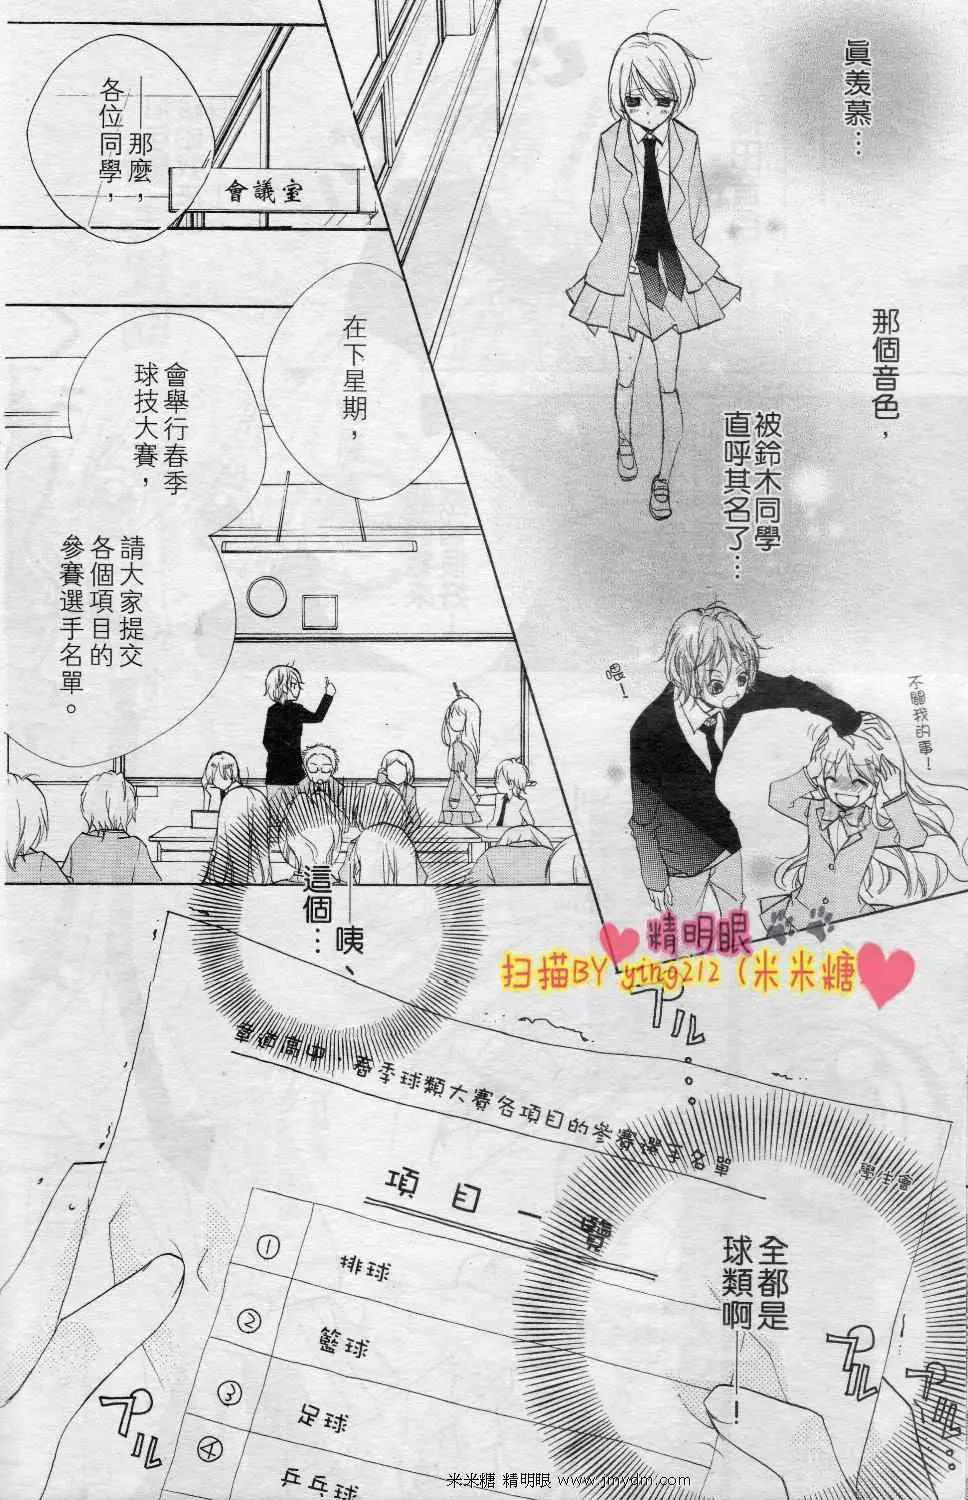 眞羨慕…
那個音色，
被鈴木同學
直呼其名了…
喂！
不關我的事！
會議室
──那麼，
各位同學，
在下星期，
會舉行春季
球技大賽，
請大家提交
各個項目的
參賽選手名單。
──咦、
這個…
精明眼
扫描BY ying212（米米糖
プル
章道高中．春季球類大賽各項目的參賽選手名單
學生會
項目一覽
① 排球
② 籃球
③ 足球
④ 乒乓球
全都是
球類啊──！
プル
プル
プル
米米糖 精明眼 www.jmydm.com